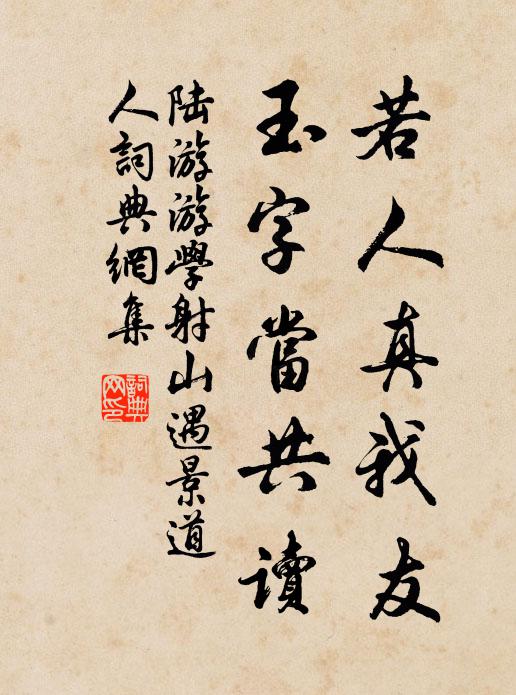 若人真我友
玉字當共讀
陆游游學射山遇景道
人詞典網集
詞典
网印